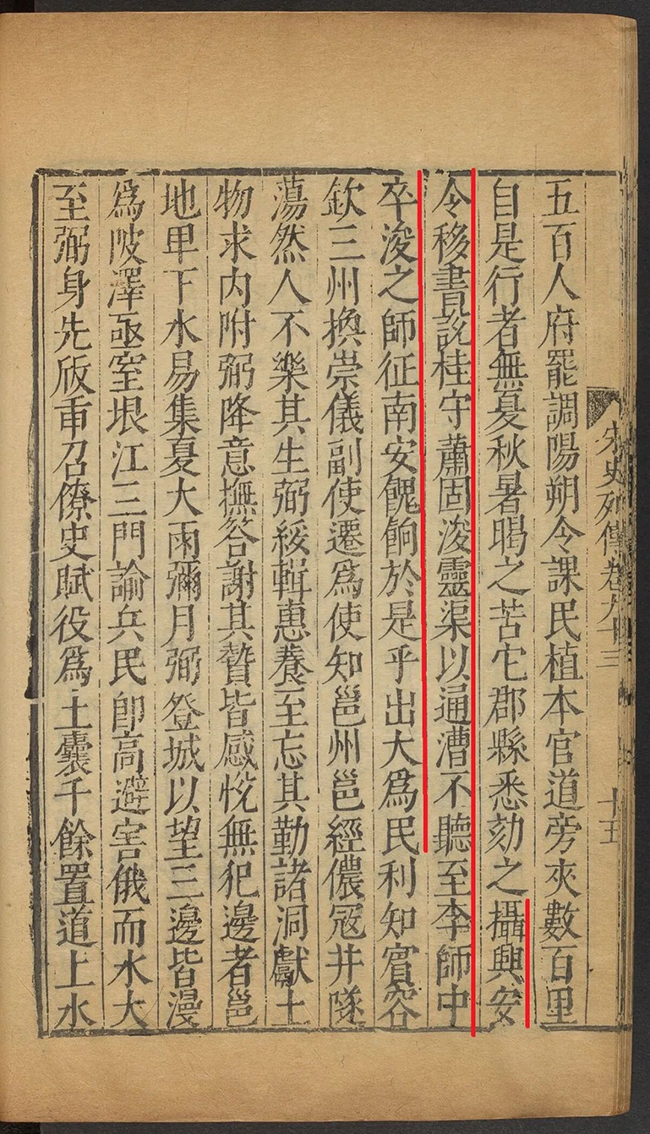 宋史列傳卷九十三 十五
五百人府罷調陽朔令課民植本官道旁夾數百里
自是行者無夏秋暑暍之苦它郡縣悉効之攝興安
令移書説桂守蕭固浚靈渠以通漕不聽至李師中
卒浚之師征南安餽餉於是乎出大爲民利知賓容
欽三州換崇儀副使遷爲使知邕州邕經儂寇井隧
蕩然人不樂其生弼綏輯惠養至忘其勤諸洞獻土
物求内附弼降意撫答謝其贄皆感悅無犯邊者邕
地卑下水易集夏大雨彌月弼登城以望三邊皆漫
爲陂澤亟窒垠江三門諭兵民卽高避害俄而水大
至弼身先版臿召僚吏賦役爲土囊千餘置道上水